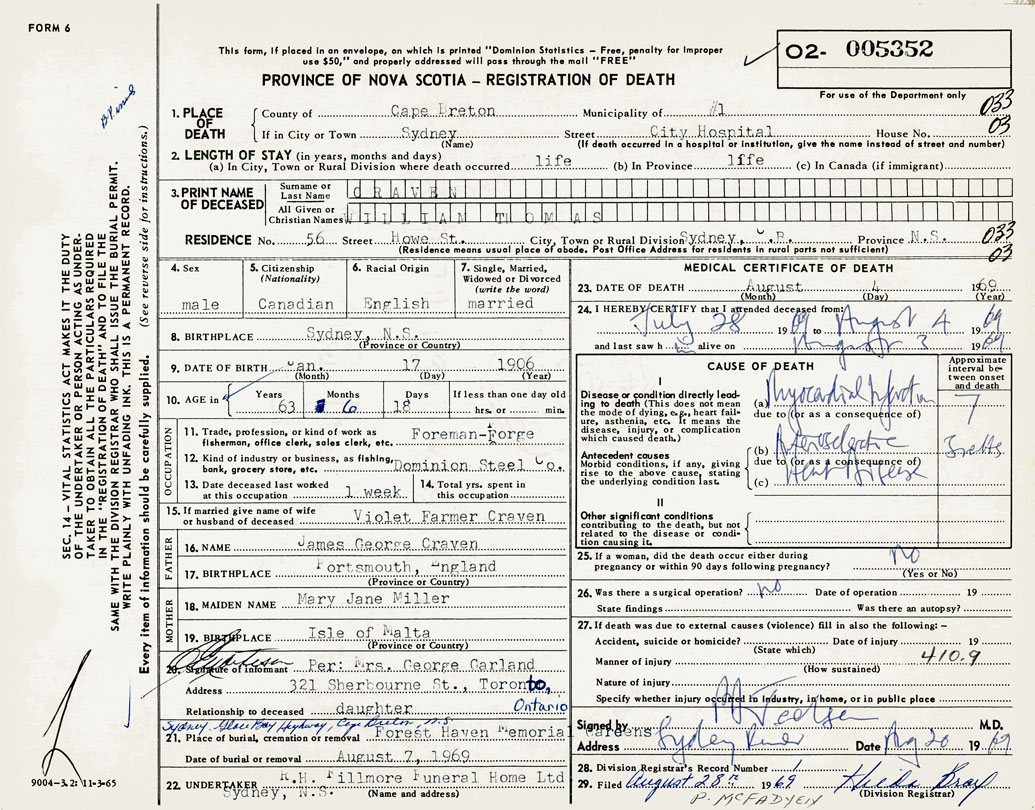 FORM 6
This form, if placed in an envelope, on which is printed "Dominion Statistics – Free, penalty for improper
use $50," and properly addressed will pass through the mail "FREE"
PROVINCE OF NOVA SCOTIA – REGISTRATION OF DEATH
02- 005352
For use of the Department only
1. PLACE OF DEATH
County of Cape Breton Municipality of #1 033
If in City or Town Sydney Street City Hospital House No. 03
(Name) (If death occurred in a hospital or institution, give the name instead of street and number)
2. LENGTH OF STAY (in years, months and days)
(a) In City, Town or Rural Division where death occurred life (b) In Province life (c) In Canada (if immigrant)
3. PRINT NAME OF DECEASED
Surname or Last Name CRAVEN
All Given or Christian Names WILLIAM THOMAS
RESIDENCE No. 56 Street Howe St. City, Town or Rural Division Sydney, C.B. Province N.S. 033
(Residence means usual place of abode. Post Office Address for residents in rural parts not sufficient) 03
4. Sex male
5. Citizenship (Nationality) Canadian
6. Racial Origin English
7. Single, Married, Widowed or Divorced (write the word) married
8. BIRTHPLACE Sydney, N.S.
(Province or Country)
9. DATE OF BIRTH Jan. 17 1906
(Month) (Day) (Year)
10. AGE in Years 63 Months 6 Days 18 If less than one day old hrs. or min.
OCCUPATION
11. Trade, profession, or kind of work as fisherman, office clerk, sales clerk, etc. Foreman-Forge
12. Kind of industry or business, as fishing, bank, grocery store, etc. Dominion Steel Co.
13. Date deceased last worked at this occupation 1 week
14. Total yrs. spent in this occupation
15. If married give name of wife or husband of deceased Violet Farmer Craven
FATHER
16. NAME James George Craven
17. BIRTHPLACE Portsmouth, England
(Province or Country)
MOTHER
18. MAIDEN NAME Mary Jane Miller
19. BIRTHPLACE Isle of Malta
(Province or Country)
20. Signature of informant Per: Mrs. George Garland
Address 321 Sherbourne St., Toronto, Ontario
Relationship to deceased daughter
Sydney Glace Bay Highway, Cape Breton, N.S.
21. Place of burial, cremation or removal Forest Haven Memorial Gardens
Date of burial or removal August 7, 1969
22. UNDERTAKER R.H. Fillmore Funeral Home Ltd
Sydney, N.S. (Name and address)
MEDICAL CERTIFICATE OF DEATH
23. DATE OF DEATH August 4 1969
(Month) (Day) (Year)
24. I HEREBY CERTIFY that I attended deceased from:
July 28 1969 to August 4 1969
and last saw h alive on August 3 1969
CAUSE OF DEATH
Approximate interval between onset and death
I
Disease or condition directly leading to death (This does not mean the mode of dying, e.g., heart failure, asthenia, etc. It means the disease, injury, or complication which caused death.)
(a) Myocardial Infarction 7
due to (or as a consequence of)
Antecedent causes
Morbid conditions, if any, giving rise to the above cause, stating the underlying condition last.
(b)
due to (or as a consequence of)
(c) Heart Disease
II
Other significant conditions
contributing to the death, but not related to the disease or condition causing it.
25. If a woman, did the death occur either during pregnancy or within 90 days following pregnancy? no
(Yes or No)
26. Was there a surgical operation? no Date of operation 19
State findings Was there an autopsy?
27. If death was due to external causes (violence) fill in also the following: –
Accident, suicide or homicide? Date of injury 19
(State which)
Manner of injury 410.9
(How sustained)
Nature of injury
Specify whether injury occurred in industry, in home, or in public place
Signed by M.D.
Address Sydney River Date Aug 20 1969
28. Division Registrar's Record Number
29. Filed August 28th 1969 Hilda Bray
P. MCFADYEN (Division Registrar)
SEC. 14 – VITAL STATISTICS ACT MAKES IT THE DUTY
OF THE UNDERTAKER OR PERSON ACTING AS UNDER-
TAKER TO OBTAIN ALL THE PARTICULARS REQUIRED
IN THE "REGISTRATION OF DEATH" AND TO FILE THE
SAME WITH THE DIVISION REGISTRAR WHO SHALL ISSUE THE BURIAL PERMIT.
WRITE PLAINLY WITH UNFADING INK. THIS IS A PERMANENT RECORD.
Every item of information should be carefully supplied. (See reverse side for instructions.)
9004–3.2: 11-3-65